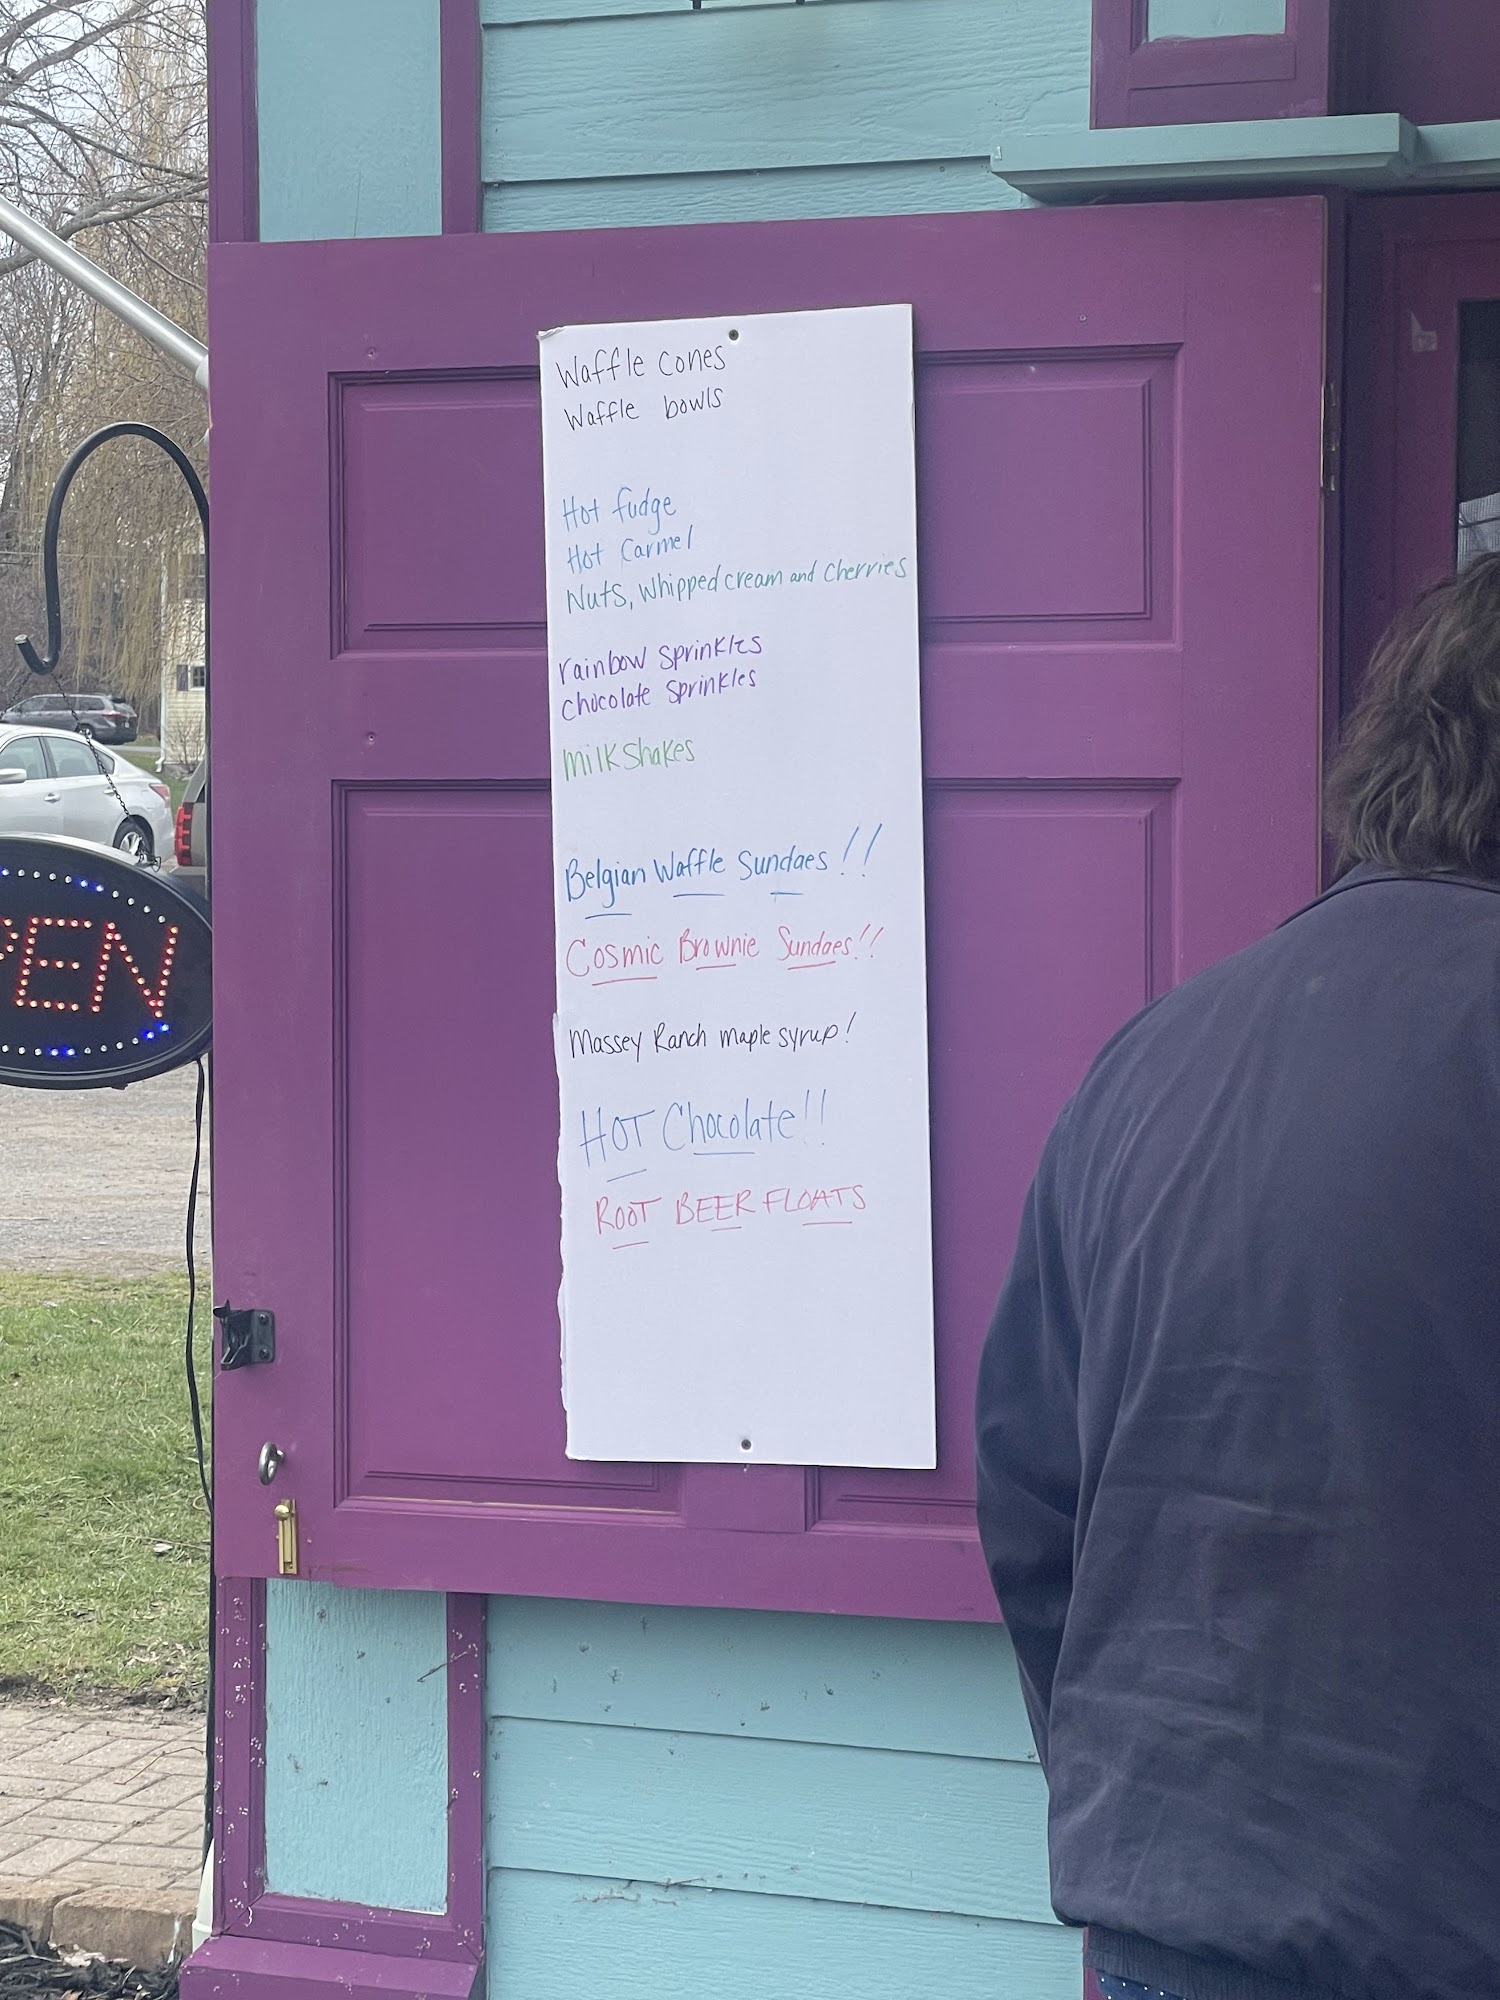 Waffle cones
Waffle bowls
Hot fudge
Hot Carmel
Nuts, whipped cream and cherries
rainbow sprinkles
chocolate sprinkles
milkshakes
Belgian Waffle Sundaes!!
Cosmic Brownie Sundaes!!
Massey Ranch maple syrup!
HOT Chocolate!!
ROOT BEER FLOATS
PEN